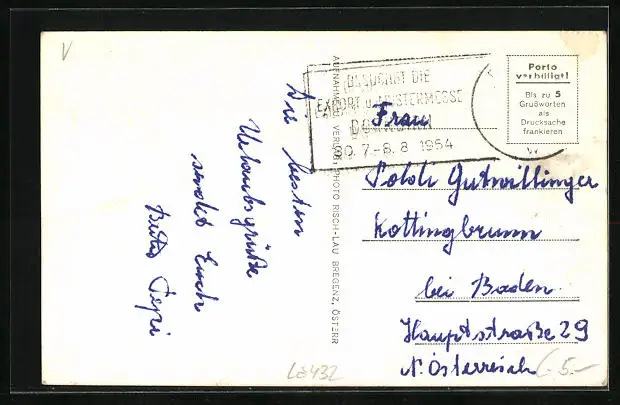 V
Die besten
Urlaubsgrüße
sendet Euch
Pepi
AUFNAHME U. VERLAG PHOTO RISCH-LAU BREGENZ, ÖSTERR
BESUCHET DIE
EXPORT u. MUSTERMESSE
DORNBIRN
30. 7.-8. 8. 1954
Porto
verbilligt!
Bis zu 5
Grußworten
als
Drucksache
frankieren
Frau
Poldi Gutwillinger
Kottingbrunn
bei Baden.
Hauptstraße 29
N. Österreich
La432
5.-